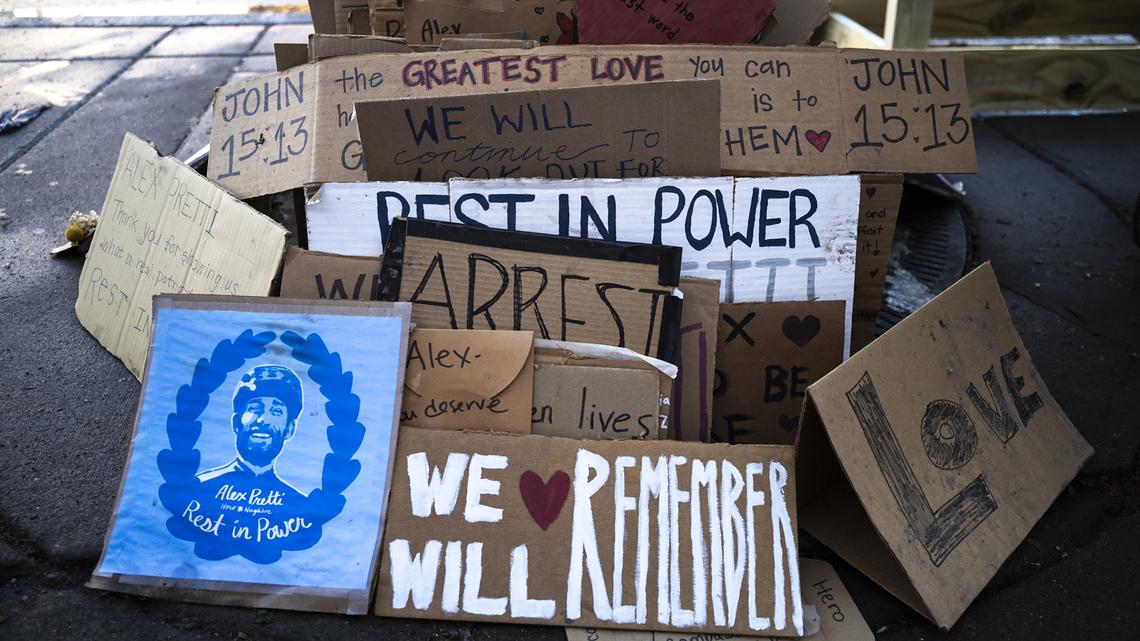 Alex
the
last word
the GREATEST LOVE you can
is to
THEM
JOHN
15:13
JOHN
15:13
WE WILL
continue TO
LOOK OUT FOR
ALEX PRETTI
Thank you for showing us
what a real patriot
REST IN
REST IN POWER
and
it!
ARREST
Alex-
you deserve
lives
BE
Alex Pretti
Hero Neighbor
Rest in Power
LOVE
WE REMEMBER
WILL
Hero